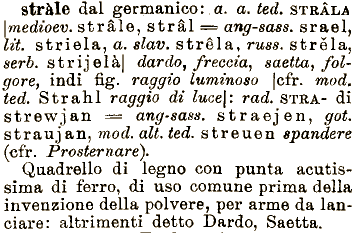 stràle dal germanico: a. a. ted. STRÂLA
|medioev. strâle, strâl = ang-sass. srael,
lit. striela, a. slav. strêla, russ. strĕla,
serb. strijelà| dardo, freccia, saetta, fol-
gore, indi fig. raggio luminoso |cfr. mod.
ted. Strahl raggio di luce|: rad. STRA- di
strewjan = ang-sass. straejen, got.
straujan, mod. alt. ted. streuen spandere
(cfr. Prosternare).
Quadrello di legno con punta acutis-
sima di ferro, di uso comune prima della
invenzione della polvere, per arme da lan-
ciare: altrimenti detto Dardo, Saetta.